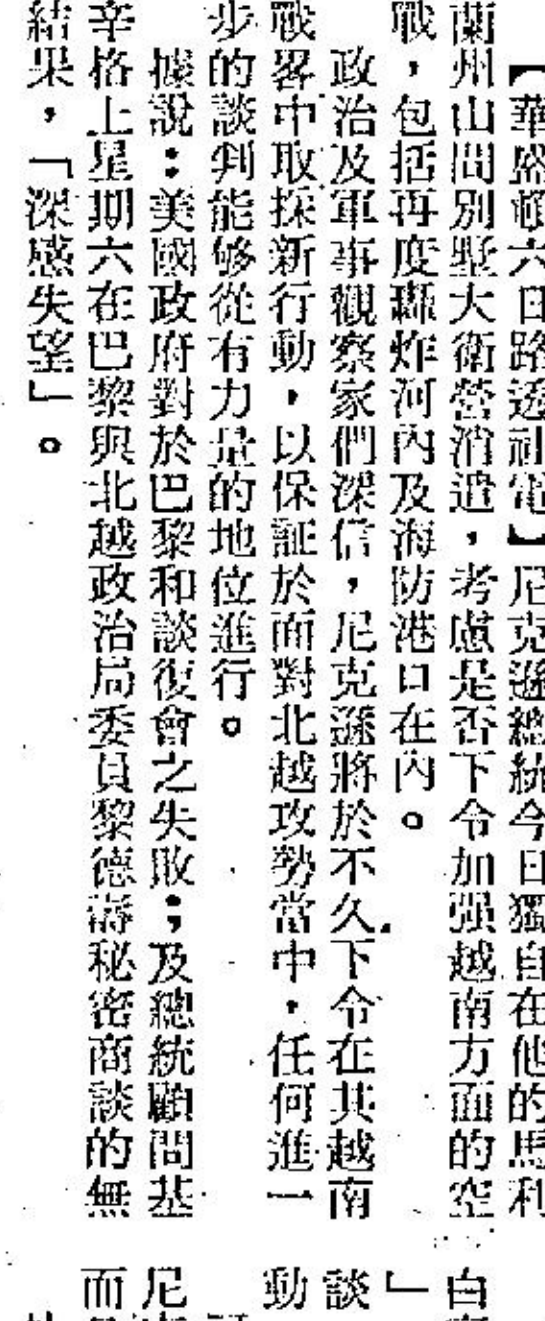 【華盛頓六日路透社電】尼克遜總統今日獨自在他的馬利
蘭州山間別墅大衛營消遣，考慮是否下令加强越南方面的空
戰，包括再度轟炸河內及海防港口在內。
政治及軍事觀察家們深信，尼克遜將於不久下令在其越南
戰畧中取採新行動，以保証於面對北越攻勢當中，任何進一
步的談判能够從有力量的地位進行。
據說：美國政府對於巴黎和談復會之失敗；及總統顧問基
辛格上星期六在巴黎與北越政治局委員黎德壽秘密商談的無
結果，「深感失望」。
白
」
談
動
尼
而